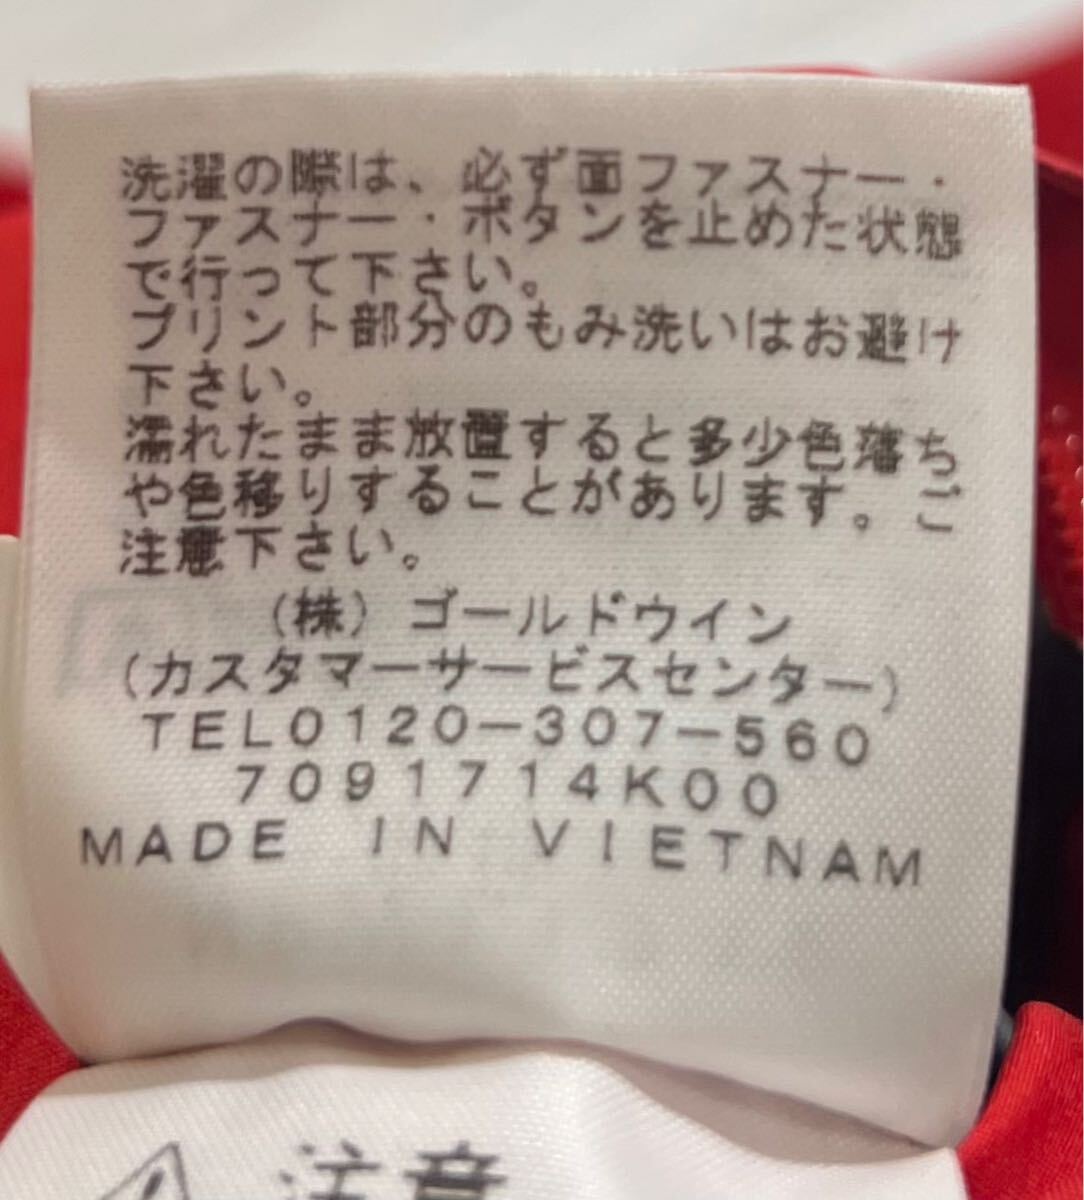 洗濯の際は、必ず面ファスナー・
ファスナー・ボタンを止めた状態
で行って下さい。
プリント部分のもみ洗いはお避け
下さい。
濡れたまま放置すると多少色落ち
や色移りすることがあります。ご
注意下さい。
(株)ゴールドウイン
(カスタマーサービスセンター)
TEL0120-307-560
7091714K00
MADE IN VIETNAM
注意